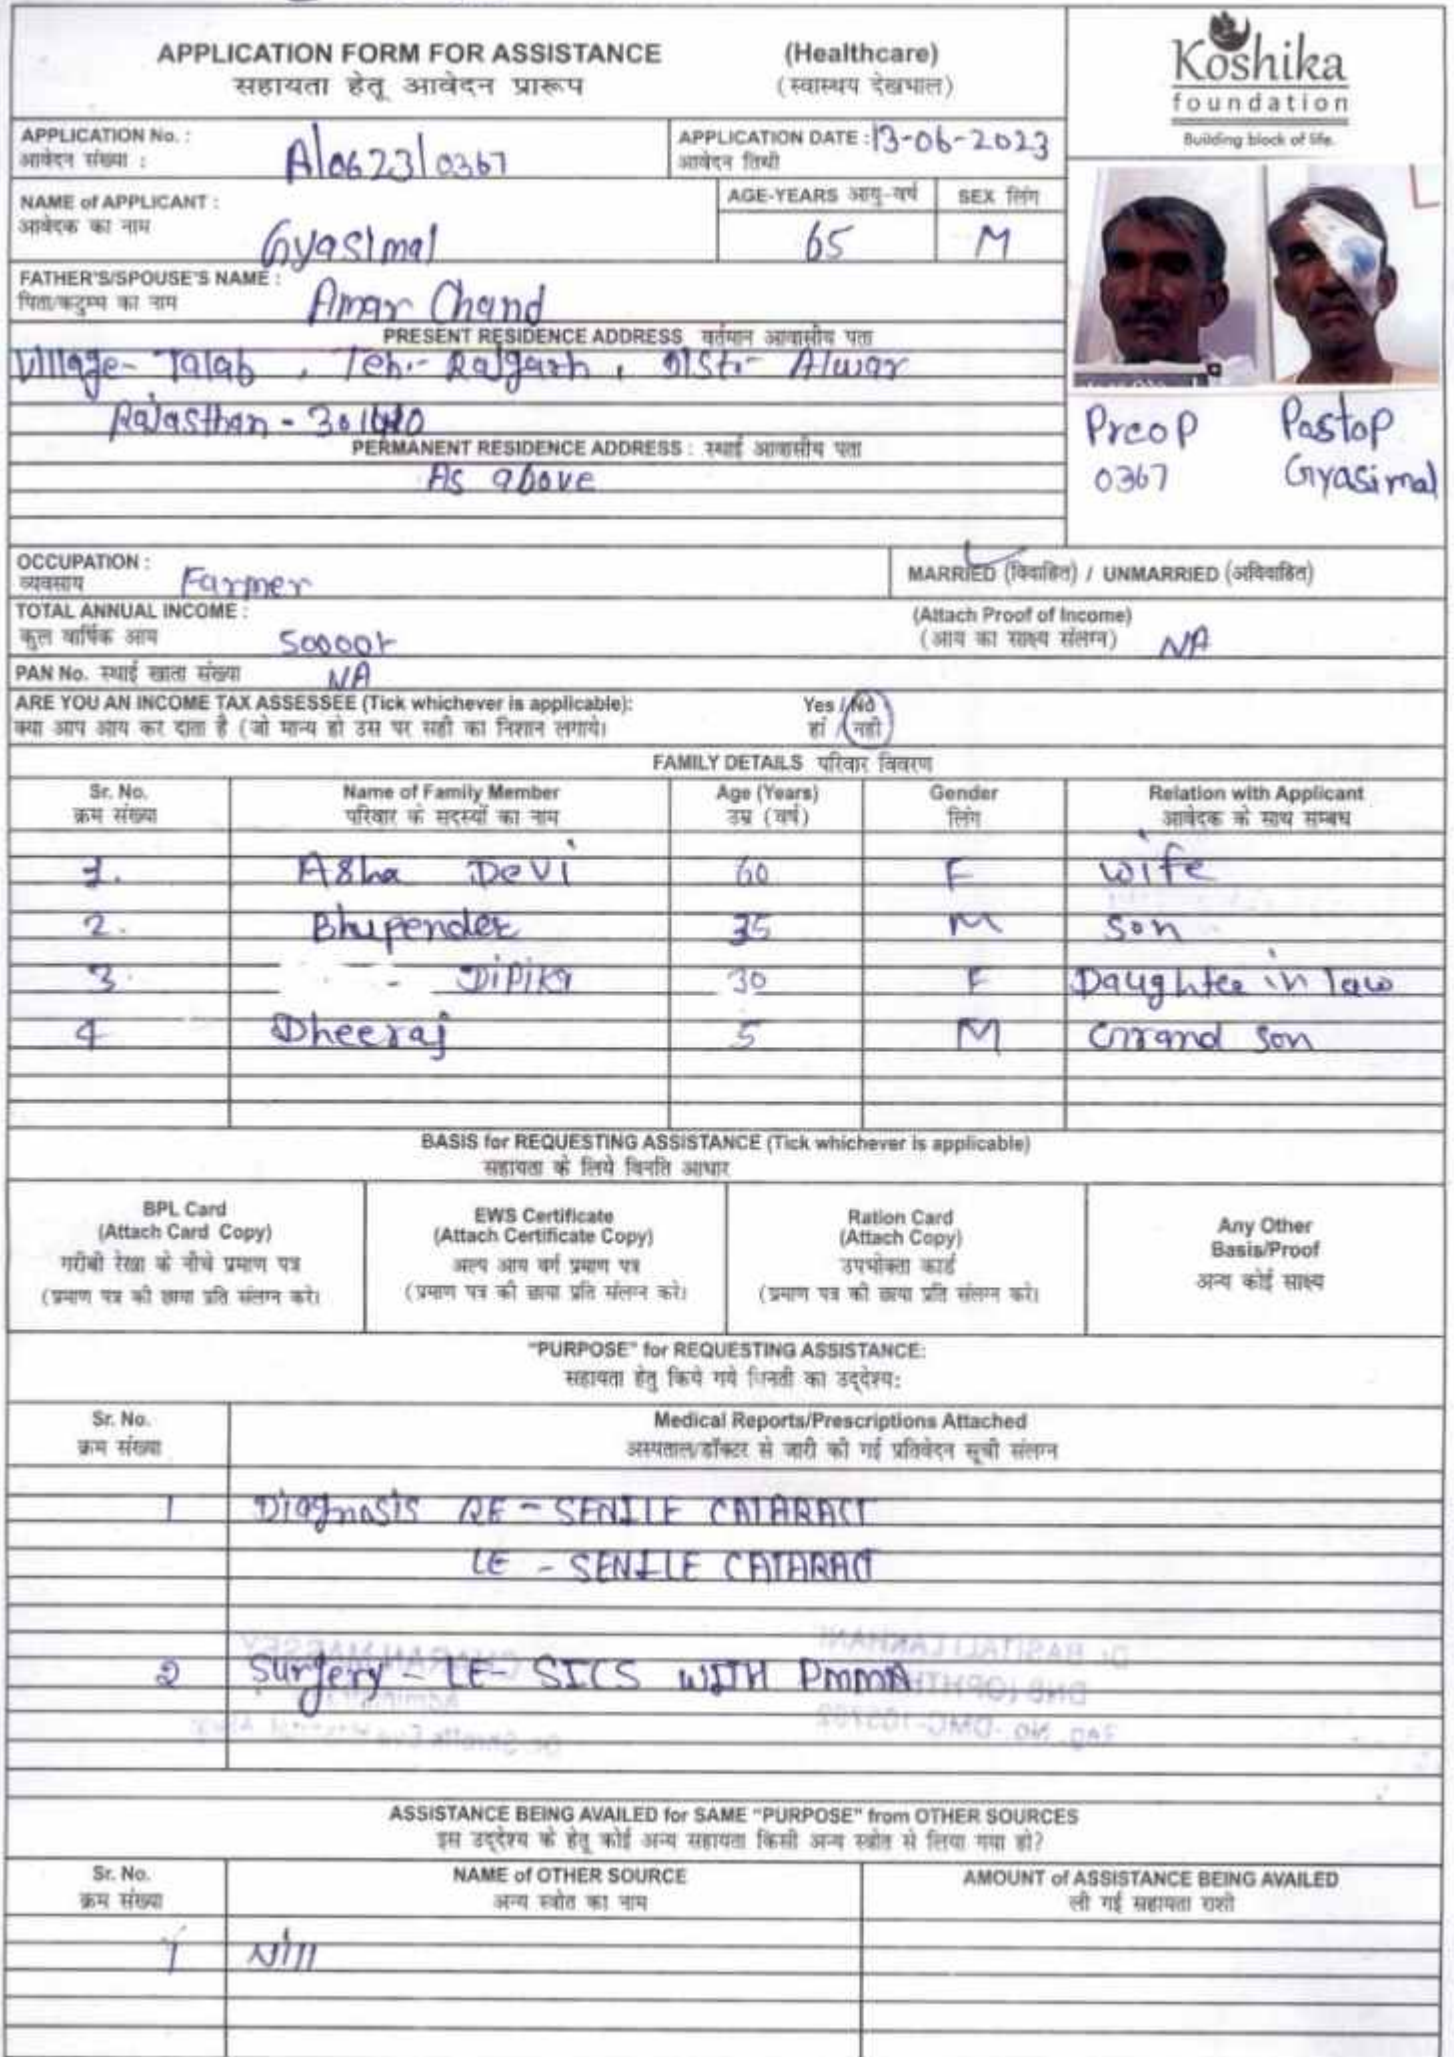 APPLICATION FORM FOR ASSISTANCE (Healthcare)
सहायता हेतू आवेदन प्रारूप (स्वास्थय देखभाल)
Koshika
foundation
Building block of life.
APPLICATION No. : A/0623/0367 APPLICATION DATE : 13-06-2023
आवेदन संख्या : आवेदन तिथी
NAME of APPLICANT : Gyasimal AGE-YEARS आयु-वर्ष 65 SEX लिंग M
आवेदक का नाम
FATHER'S/SPOUSE'S NAME : Amar Chand
पिता/कटुम्ब का नाम
PRESENT RESIDENCE ADDRESS वर्तमान आवासीय पता
Village- Talab , Teh.- Rajgarh , Dist.- Alwar
Rajasthan -
PERMANENT RESIDENCE ADDRESS : स्थाई आवासीय पता
As above
Preop Postop
0367 Gyasimal
OCCUPATION : Farmer MARRIED (विवाहित) / UNMARRIED (अविवाहित)
व्यवसाय
TOTAL ANNUAL INCOME : (Attach Proof of Income)
कुल वार्षिक आय 50000/- (आय का साक्ष्य संलग्न) NA
PAN No. स्थाई खाता संख्या NA
ARE YOU AN INCOME TAX ASSESSEE (Tick whichever is applicable): Yes / No
क्या आप आय कर दाता है (जो मान्य हो उस पर सही का निशान लगाये। हां / नही
FAMILY DETAILS परिवार विवरण
Sr. No. Name of Family Member Age (Years) Gender Relation with Applicant
क्रम संख्या परिवार के सदस्यों का नाम उम्र (वर्ष) लिंग आवेदक के साथ सम्बध
1. Asha Devi 60 F wife
2. Bhupender 35 M Son
3. Dipika 30 F Daughter in law
4 Dheeraj 5 M Grand son
BASIS for REQUESTING ASSISTANCE (Tick whichever is applicable)
सहायता के लिये विनति आधार
BPL Card
(Attach Card Copy)
गरीबी रेखा के नीचे प्रमाण पत्र
(प्रमाण पत्र की छाया प्रति संलग्न करे।
EWS Certificate
(Attach Certificate Copy)
अल्प आय वर्ग प्रमाण पत्र
(प्रमाण पत्र की छाया प्रति संलग्न करे।
Ration Card
(Attach Copy)
उपभोक्ता कार्ड
(प्रमाण पत्र की छाया प्रति संलग्न करे।
Any Other
Basis/Proof
अन्य कोई साक्ष्य
"PURPOSE" for REQUESTING ASSISTANCE:
सहायता हेतु किये गये विनती का उद्देश्य:
Sr. No. Medical Reports/Prescriptions Attached
क्रम संख्या अस्पताल/डॉक्टर से जारी की गई प्रतिवेदन सूची संलग्न
1 Diagnosis RE - SENILE CATARACT
LE - SENILE CATARACT
2 Surgery - LE - SICS WITH PMMA
ASSISTANCE BEING AVAILED for SAME "PURPOSE" from OTHER SOURCES
इस उद्देश्य के हेतु कोई अन्य सहायता किसी अन्य स्त्रोत से लिया गया हो?
Sr. No. NAME of OTHER SOURCE AMOUNT of ASSISTANCE BEING AVAILED
क्रम संख्या अन्य स्त्रोत का नाम ली गई सहायता राशी
1 Nill